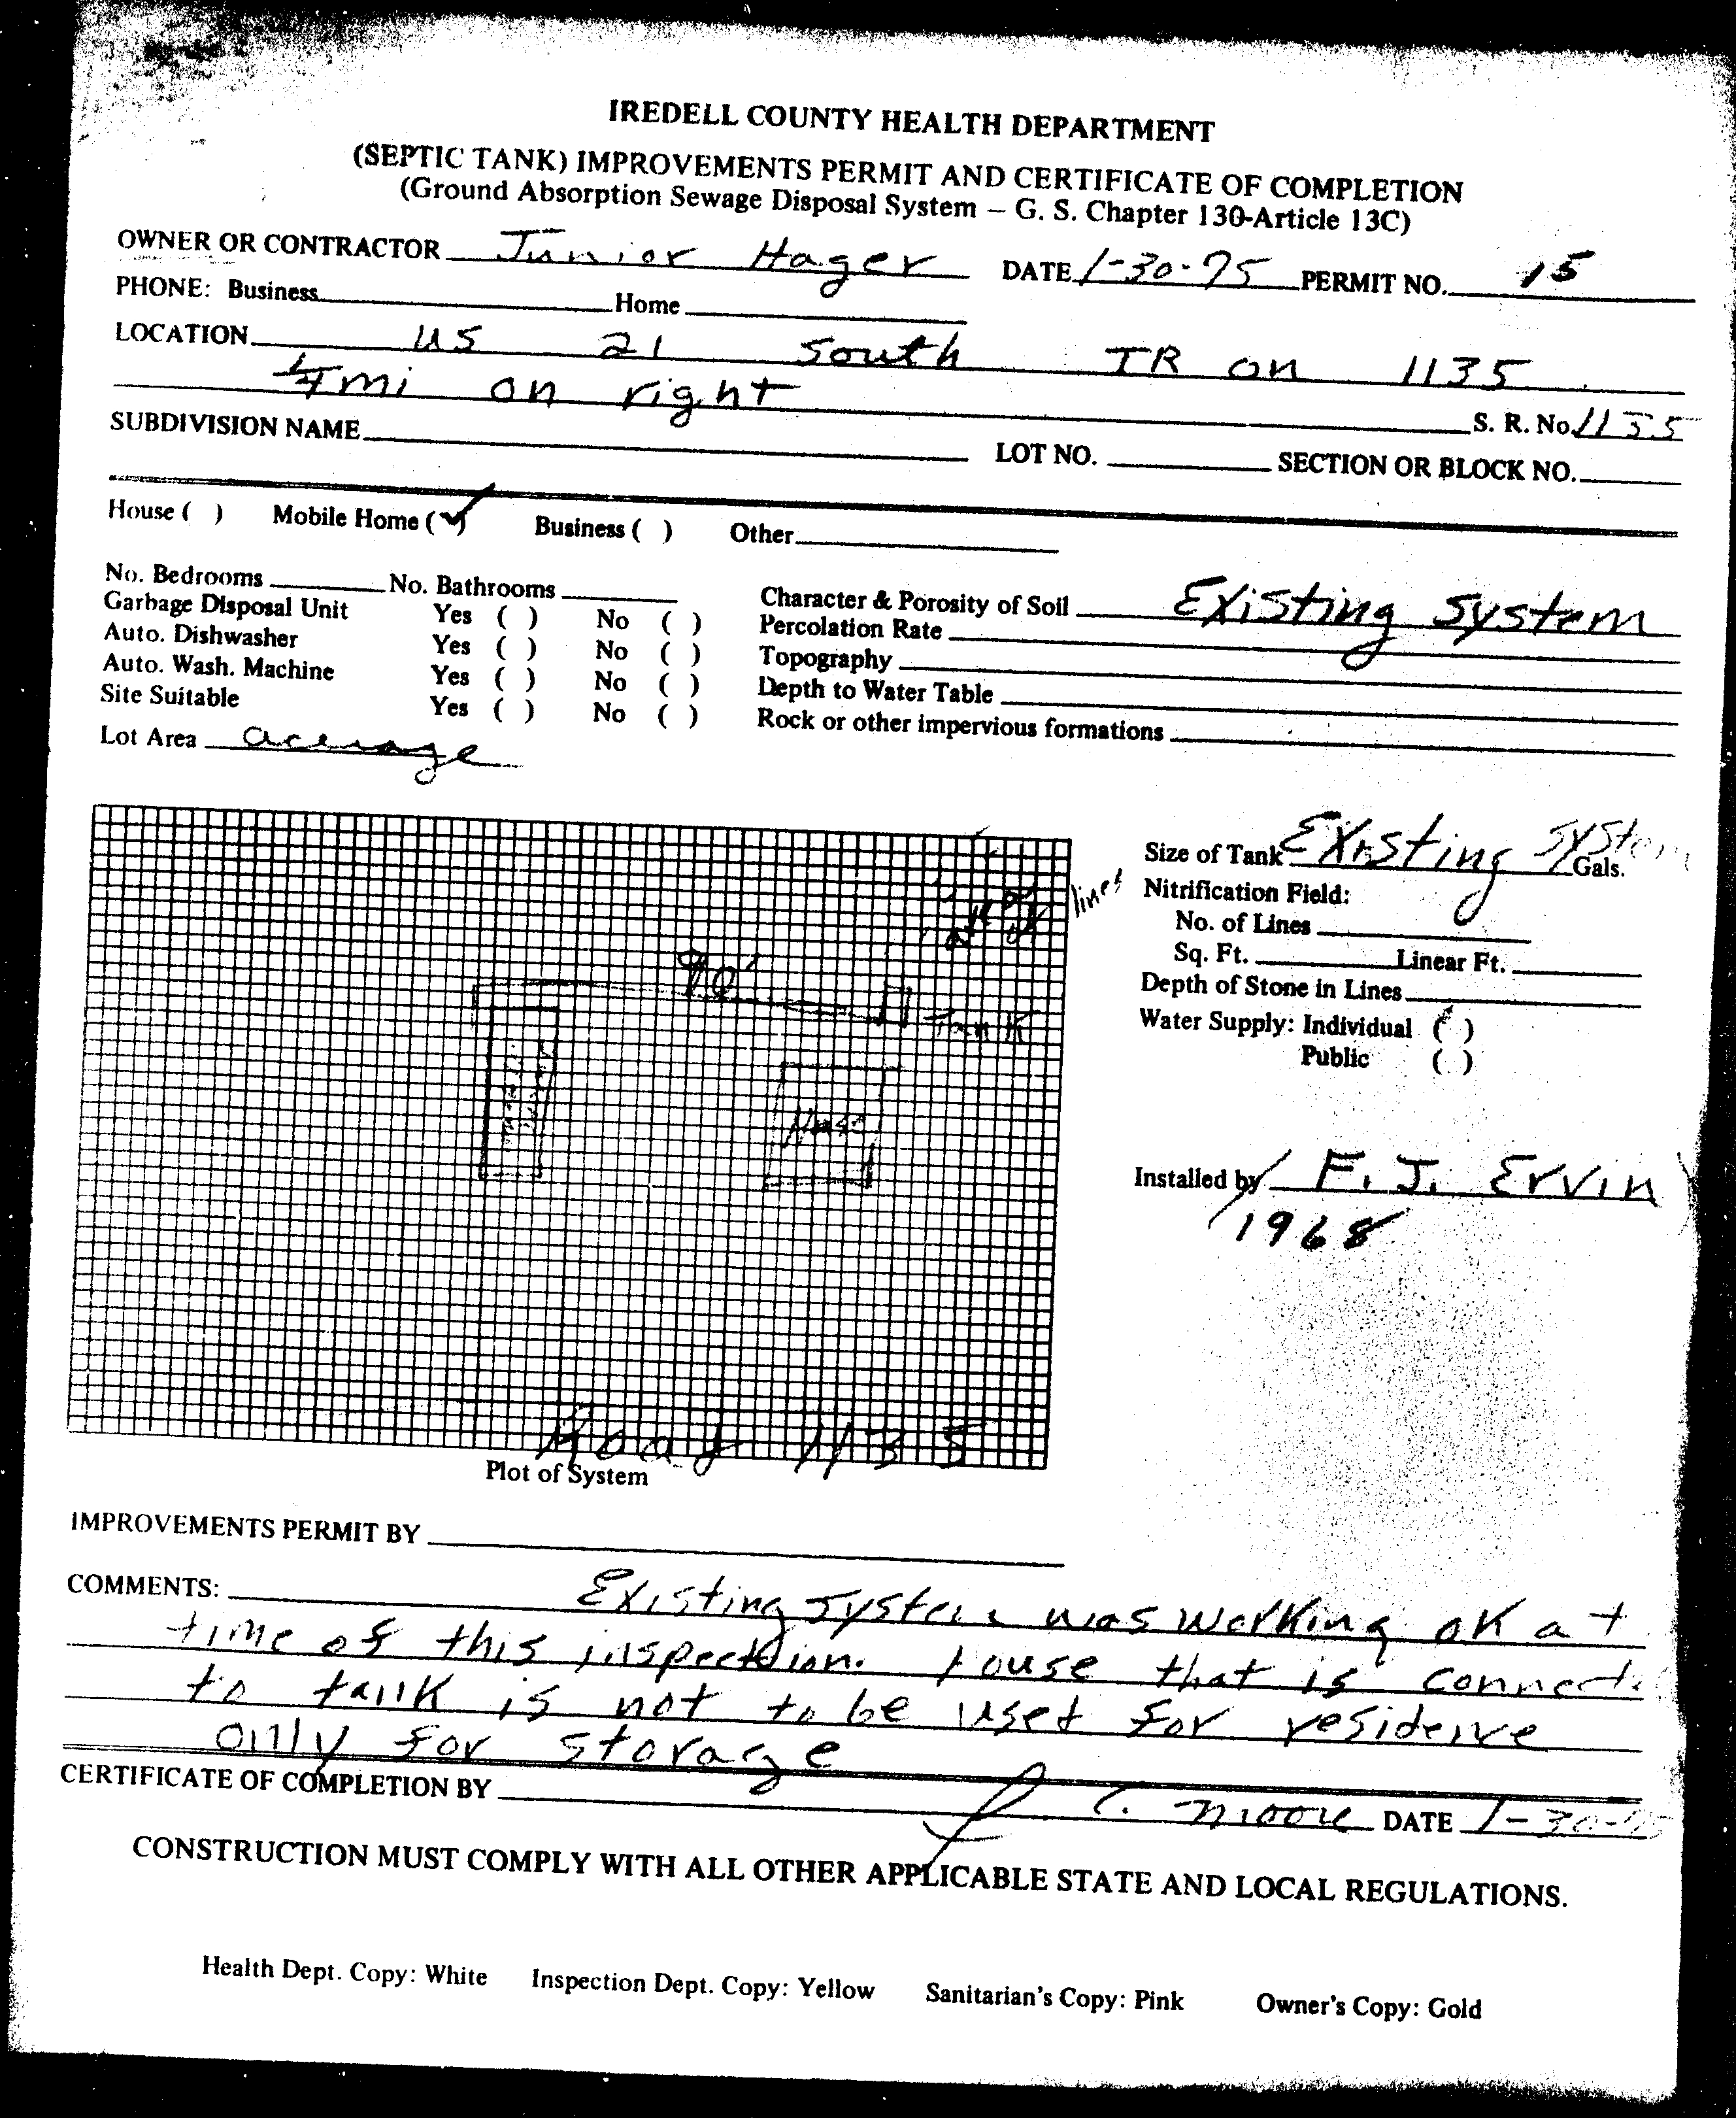 IREDELL COUNTY HEALTH DEPARTMENT
(SEPTIC TANK) IMPROVEMENTS PERMIT AND CERTIFICATE OF COMPLETION
(Ground Absorption Sewage Disposal System – G. S. Chapter 130-Article 13C)
OWNER OR CONTRACTOR Junior Hager DATE 1-30-75 PERMIT NO. 15
PHONE: Business Home
LOCATION US 21 South TR on 1135
1/4 mi on right S. R. No. 1135
SUBDIVISION NAME LOT NO. SECTION OR BLOCK NO.
House ( ) Mobile Home (✓) Business ( ) Other
No. Bedrooms No. Bathrooms Character & Porosity of Soil Existing System
Garbage Disposal Unit Yes ( ) No ( ) Percolation Rate
Auto. Dishwasher Yes ( ) No ( ) Topography
Auto. Wash. Machine Yes ( ) No ( ) Depth to Water Table
Site Suitable Yes ( ) No ( ) Rock or other impervious formations
Lot Area acerage
Size of Tank Existing System Gals.
lines
Nitrification Field:
No. of Lines
Sq. Ft. Linear Ft.
90'
Tank
Depth of Stone in Lines
Water Supply: Individual (✓)
Public ( )
House
Installed by F. J. Ervin
1968
Road 1135
Plot of System
IMPROVEMENTS PERMIT BY
COMMENTS: Existing system was working ok at
time of this inspection. House that is connect
to tank is not to be used for residence
only for storage
CERTIFICATE OF COMPLETION BY Moore DATE 1-30-75
CONSTRUCTION MUST COMPLY WITH ALL OTHER APPLICABLE STATE AND LOCAL REGULATIONS.
Health Dept. Copy: White Inspection Dept. Copy: Yellow Sanitarian's Copy: Pink Owner's Copy: Gold